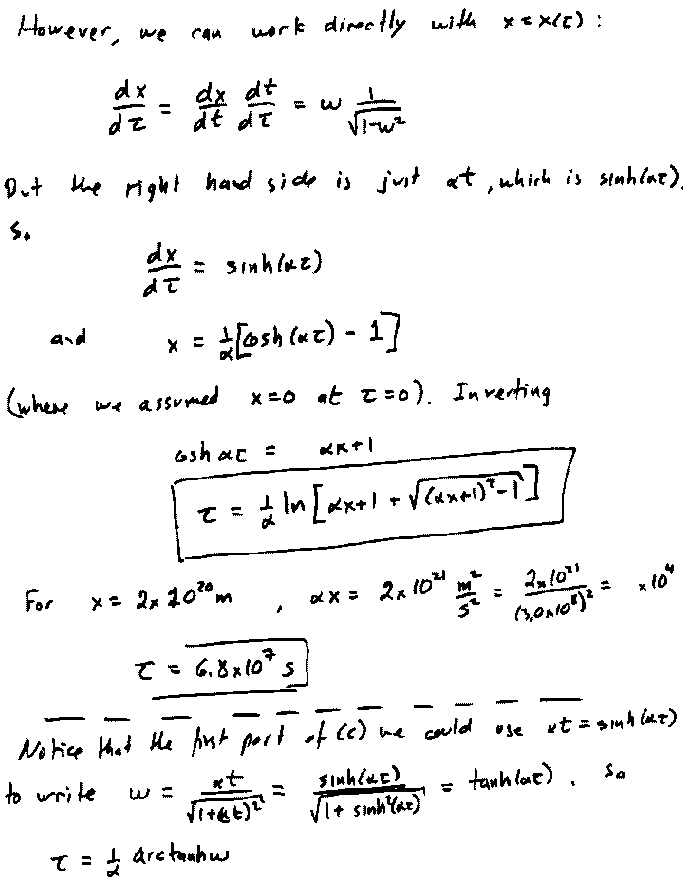 However, we can work directly with x = x(τ) :
dx/dτ = dx/dt dt/dτ = w 1/√(1-w²)
But the right hand side is just αt, which is sinh(ατ).
So
dx/dτ = sinh(ατ)
and x = 1/α [cosh(ατ) - 1]
(where we assumed x=0 at τ=0). Inverting
cosh ατ = αx+1
τ = 1/α ln [αx+1 + √((αx+1)²-1)]
For x = 2x10²⁰m , αx = 2x10²¹ m²/s² = 2x10²¹/(3.0x10⁸)² = x10⁴
τ = 6.8x10⁷ s
Notice that the first part of (c) we could use αt = sinh(ατ)
to write w = αt/√(1+(αt)²) = sinh(ατ)/√(1+sinh²(ατ)) = tanh(ατ). So
τ = 1/α arctanh w